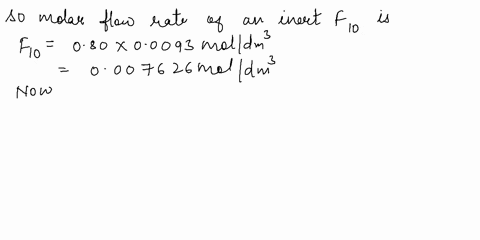 so molar flow rate of an inert F10 is
F10 = 0.80 x 0.0093 mol/dm³
= 0.007626 mol/dm³
Now